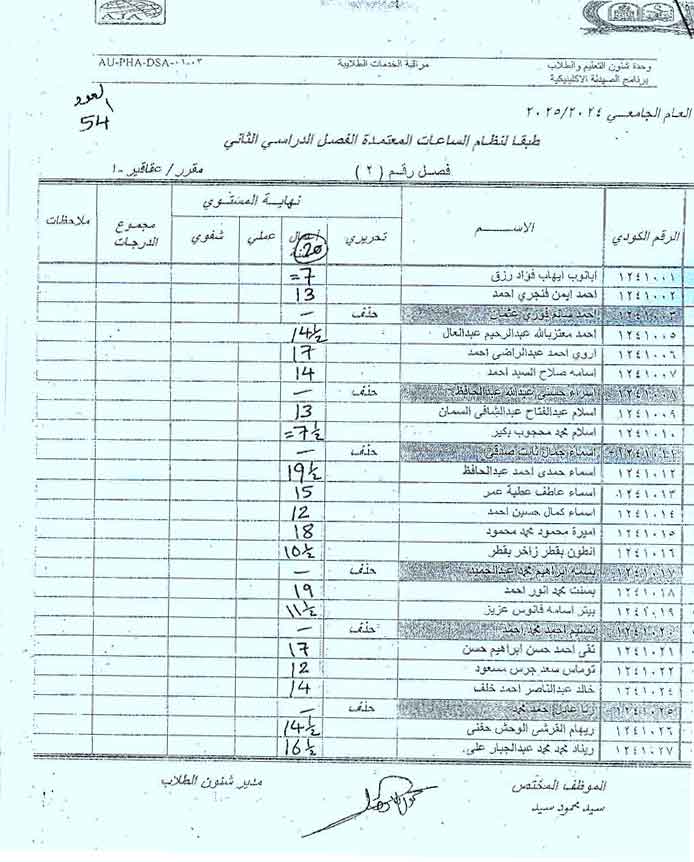 AJA
AU-PHA-DSA-٠١-٠٣
مراقبة الخدمات الطلابية
وحدة شئون التعليم والطلاب
برنامج الصيدلة الاكلينيكية
العدد
54
العام الجامعي ٢٠٢٥/٢٠٢٤
طبقا لنظام الساعات المعتمدة الفصل الدراسي الثاني
فصل رقم ( ٢ ) مقرر/ عقاقير-١
الرقم الكودي الاســـم نهاية المستوي مجموع الدرجات ملاحظات
تحريري اعمال 20 عملي شفوي
١٢٤١٠٠١ أبانوب ايهاب فؤاد رزق =7
١٢٤١٠٠٢ احمد ايمن فنجري احمد 13
١٢٤١٠٠٣ احمد سالم فوزي عثمان حذف -
١٢٤١٠٠٥ احمد معتزبالله عبدالرحيم عبدالعال 14½
١٢٤١٠٠٦ اروي احمد عبدالراضى احمد 17
١٢٤١٠٠٧ اسامه صلاح السيد احمد 14
١٢٤١٠٠٨ اسراء حسنى عبدالله عبدالحافظ حذف -
١٢٤١٠٠٩ اسلام عبدالفتاح عبدالشافى السمان 13
١٢٤١٠١٠ اسلام محمد محجوب بكير =7½
١٢٤١٠١١ اسماء جمال ثابت صدقي حذف -
١٢٤١٠١٢ اسماء حمدى احمد عبدالحافظ 19½
١٢٤١٠١٣ اسماء عاطف عطية عمر 15
١٢٤١٠١٤ اسماء كمال حسين احمد 12
١٢٤١٠١٥ اميرة محمود محمد محمود 18
١٢٤١٠١٦ انطون بقطر زاخر بقطر 10½
١٢٤١٠١٧ بسمه ابراهيم محمد عبدالحميد حذف -
١٢٤١٠١٨ بسنت محمد انور احمد 19
١٢٤١٠١٩ بيتر اسامه فانوس عزيز 11½
١٢٤١٠٢٠ تسنيم احمد محمد احمد حذف -
١٢٤١٠٢١ تقى احمد حسن ابراهيم حسن 17
١٢٤١٠٢٢ توماس سعد جرس مسعود 12
١٢٤١٠٢٤ خالد عبدالناصر احمد خلف 14
١٢٤١٠٢٥ رنا عادل احمد محمد حذف -
١٢٤١٠٢٦ ريهام القرشى الوحش حفنى 14½
١٢٤١٠٢٧ ريناد محمد محمد عبدالجبار على 16½
الموظف المختص مدير شئون الطلاب
سيد محمود سيد